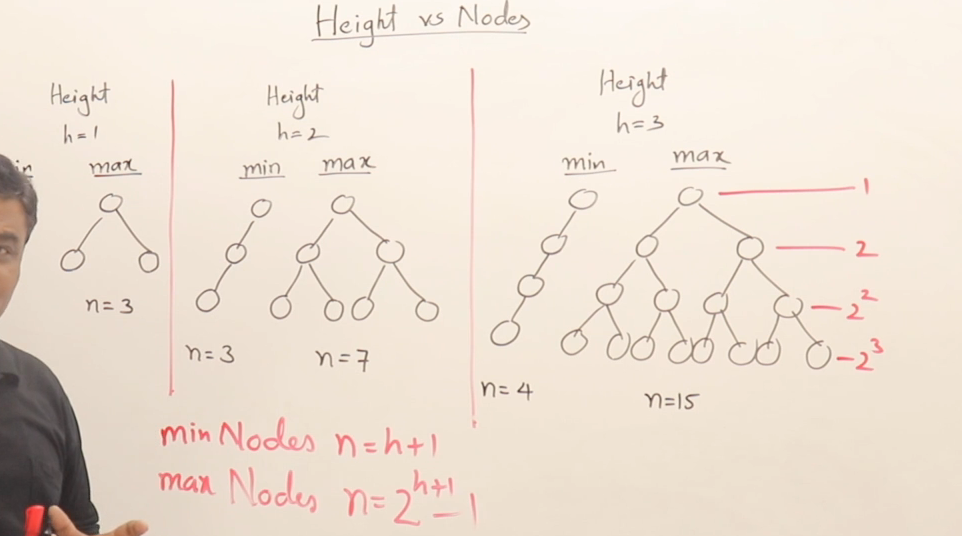 Height vs Nodes
Height
h=1
max
n=3
Height
h=2
min max
n=3 n=7
Height
h=3
min max
1
2
2²
2³
n=4 n=15
min Nodes n=h+1
max Nodes n=2^(h+1)-1